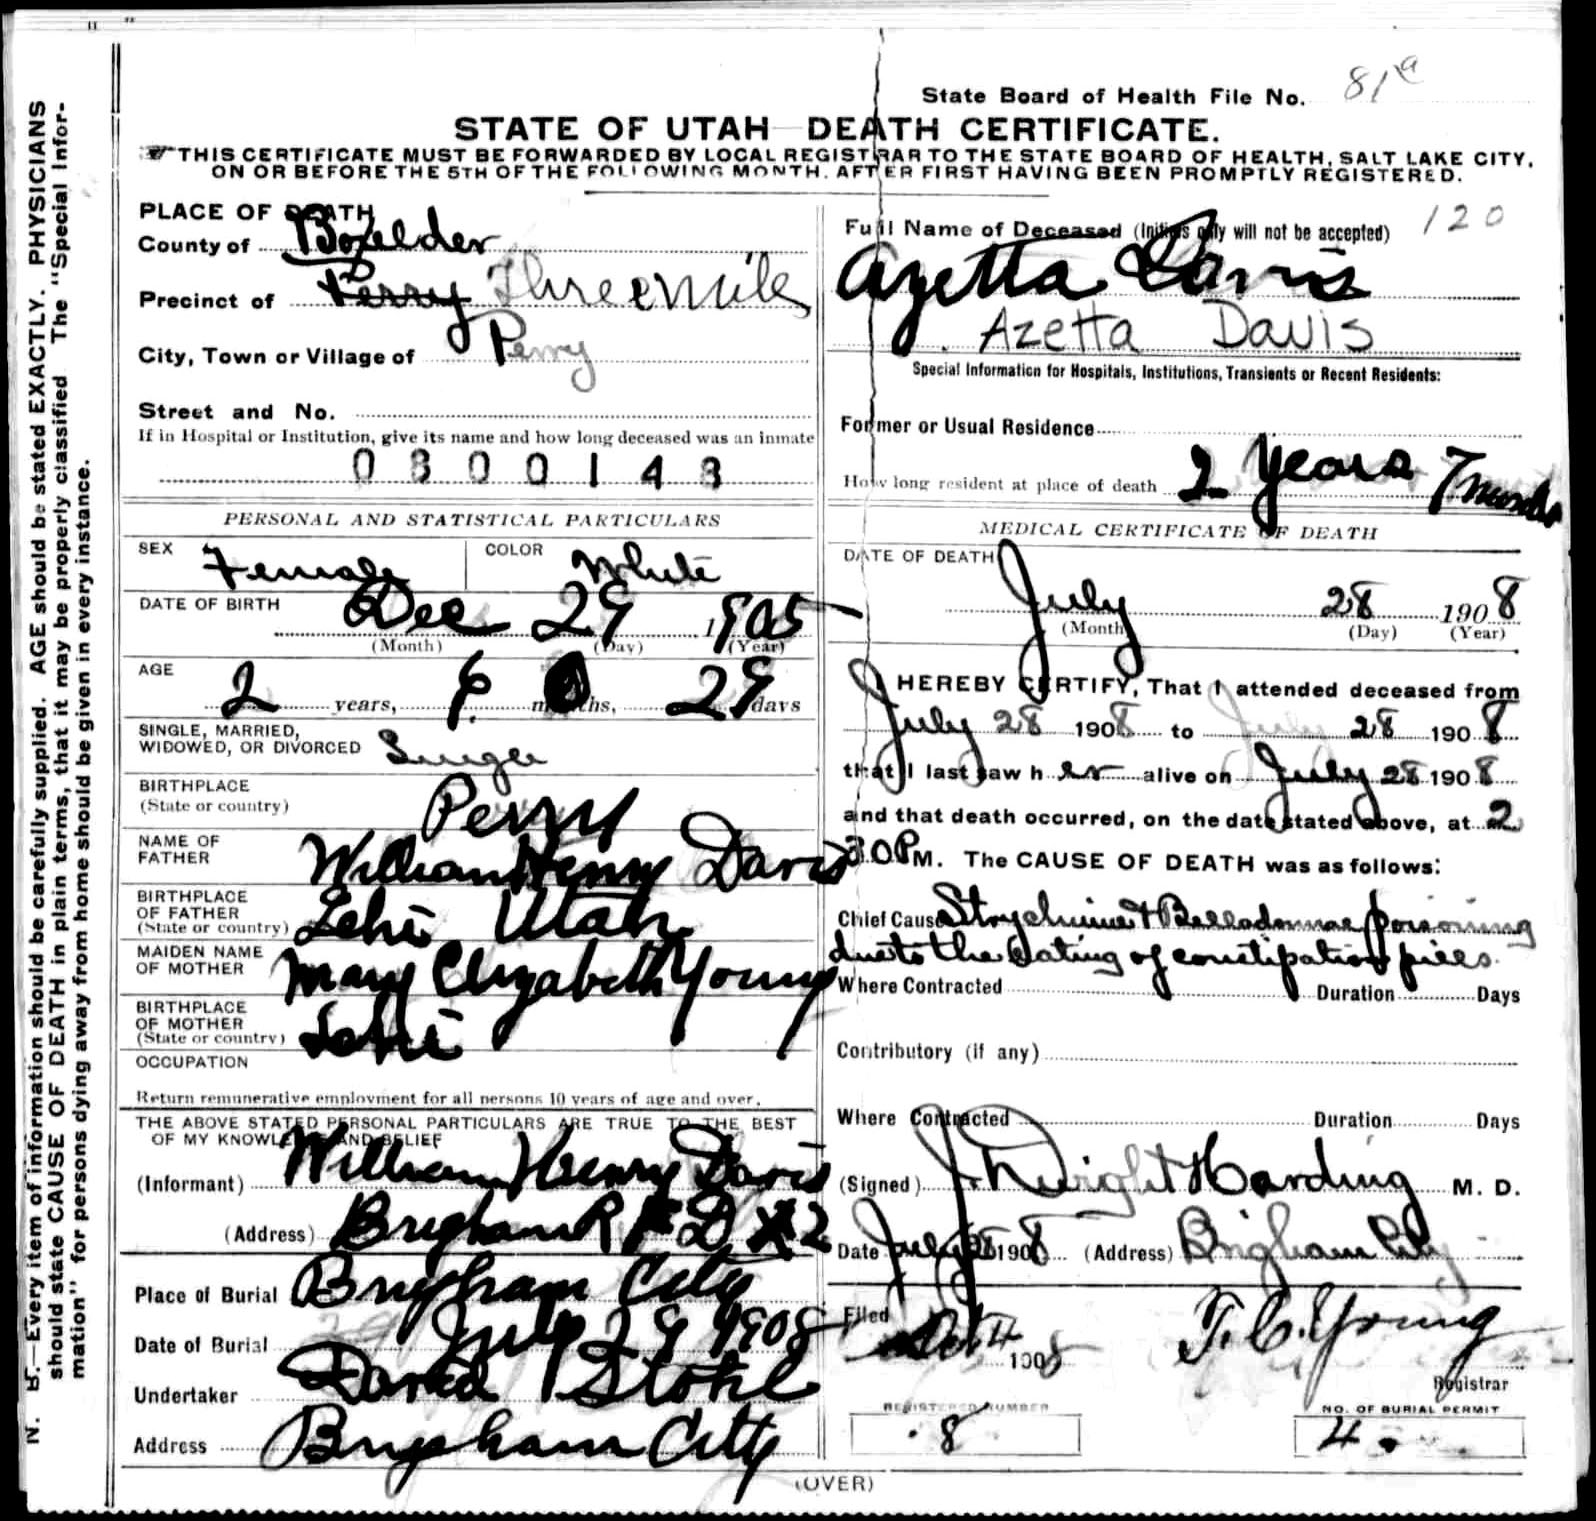 State Board of Health File No. 81a
STATE OF UTAH—DEATH CERTIFICATE.
THIS CERTIFICATE MUST BE FORWARDED BY LOCAL REGISTRAR TO THE STATE BOARD OF HEALTH, SALT LAKE CITY,
ON OR BEFORE THE 5TH OF THE FOLLOWING MONTH, AFTER FIRST HAVING BEEN PROMPTLY REGISTERED.
N. B.—Every item of information should be carefully supplied. AGE should be stated EXACTLY. PHYSICIANS
should state CAUSE OF DEATH in plain terms, that it may be properly classified The "Special Infor-
mation" for persons dying away from home should be given in every instance.
PLACE OF DEATH
County of Boxelder
Precinct of Perry Three Mile
City, Town or Village of Perry
Street and No.
If in Hospital or Institution, give its name and how long deceased was an inmate
0300143
PERSONAL AND STATISTICAL PARTICULARS
SEX Female COLOR White
DATE OF BIRTH Dec 29 1905
(Month) (Day) (Year)
AGE 2 years, 6 months, 29 days
SINGLE, MARRIED,
WIDOWED, OR DIVORCED Single
BIRTHPLACE
(State or country) Perry
NAME OF
FATHER William Henry Davis
BIRTHPLACE
OF FATHER
(State or country) Lehi Utah
MAIDEN NAME
OF MOTHER Mary Elizabeth Young
BIRTHPLACE
OF MOTHER
(State or country) Lehi
OCCUPATION
Return remunerative employment for all persons 10 years of age and over.
THE ABOVE STATED PERSONAL PARTICULARS ARE TRUE TO THE BEST
OF MY KNOWLEDGE AND BELIEF
(Informant) William Henry Davis
(Address) Brigham R F D #2
Place of Burial Brigham City
Date of Burial July 29 1908
Undertaker David Stohl
Address Brigham City
Full Name of Deceased (Initials only will not be accepted) 120
Azetta Davis
Azetta Davis
Special Information for Hospitals, Institutions, Transients or Recent Residents:
Former or Usual Residence
How long resident at place of death 2 Years 7 months
MEDICAL CERTIFICATE OF DEATH
DATE OF DEATH
July 28 1908
(Month) (Day) (Year)
I HEREBY CERTIFY, That I attended deceased from
July 28 1908 to July 28 1908
that I last saw her alive on July 28 1908
and that death occurred, on the date stated above, at 2
30 P M. The CAUSE OF DEATH was as follows:
Chief Cause Strychnine & Belladonnae poisoning
due to the Eating of constipation pills.
Where Contracted Duration Days
Contributory (if any)
Where Contracted Duration Days
(Signed) J. Dwight Harding M. D.
Date July 28 1908 (Address) Brigham City
Filed 1908 T. C. Young
Registrar
REGISTERED NUMBER 8
NO. OF BURIAL PERMIT 4
(OVER)